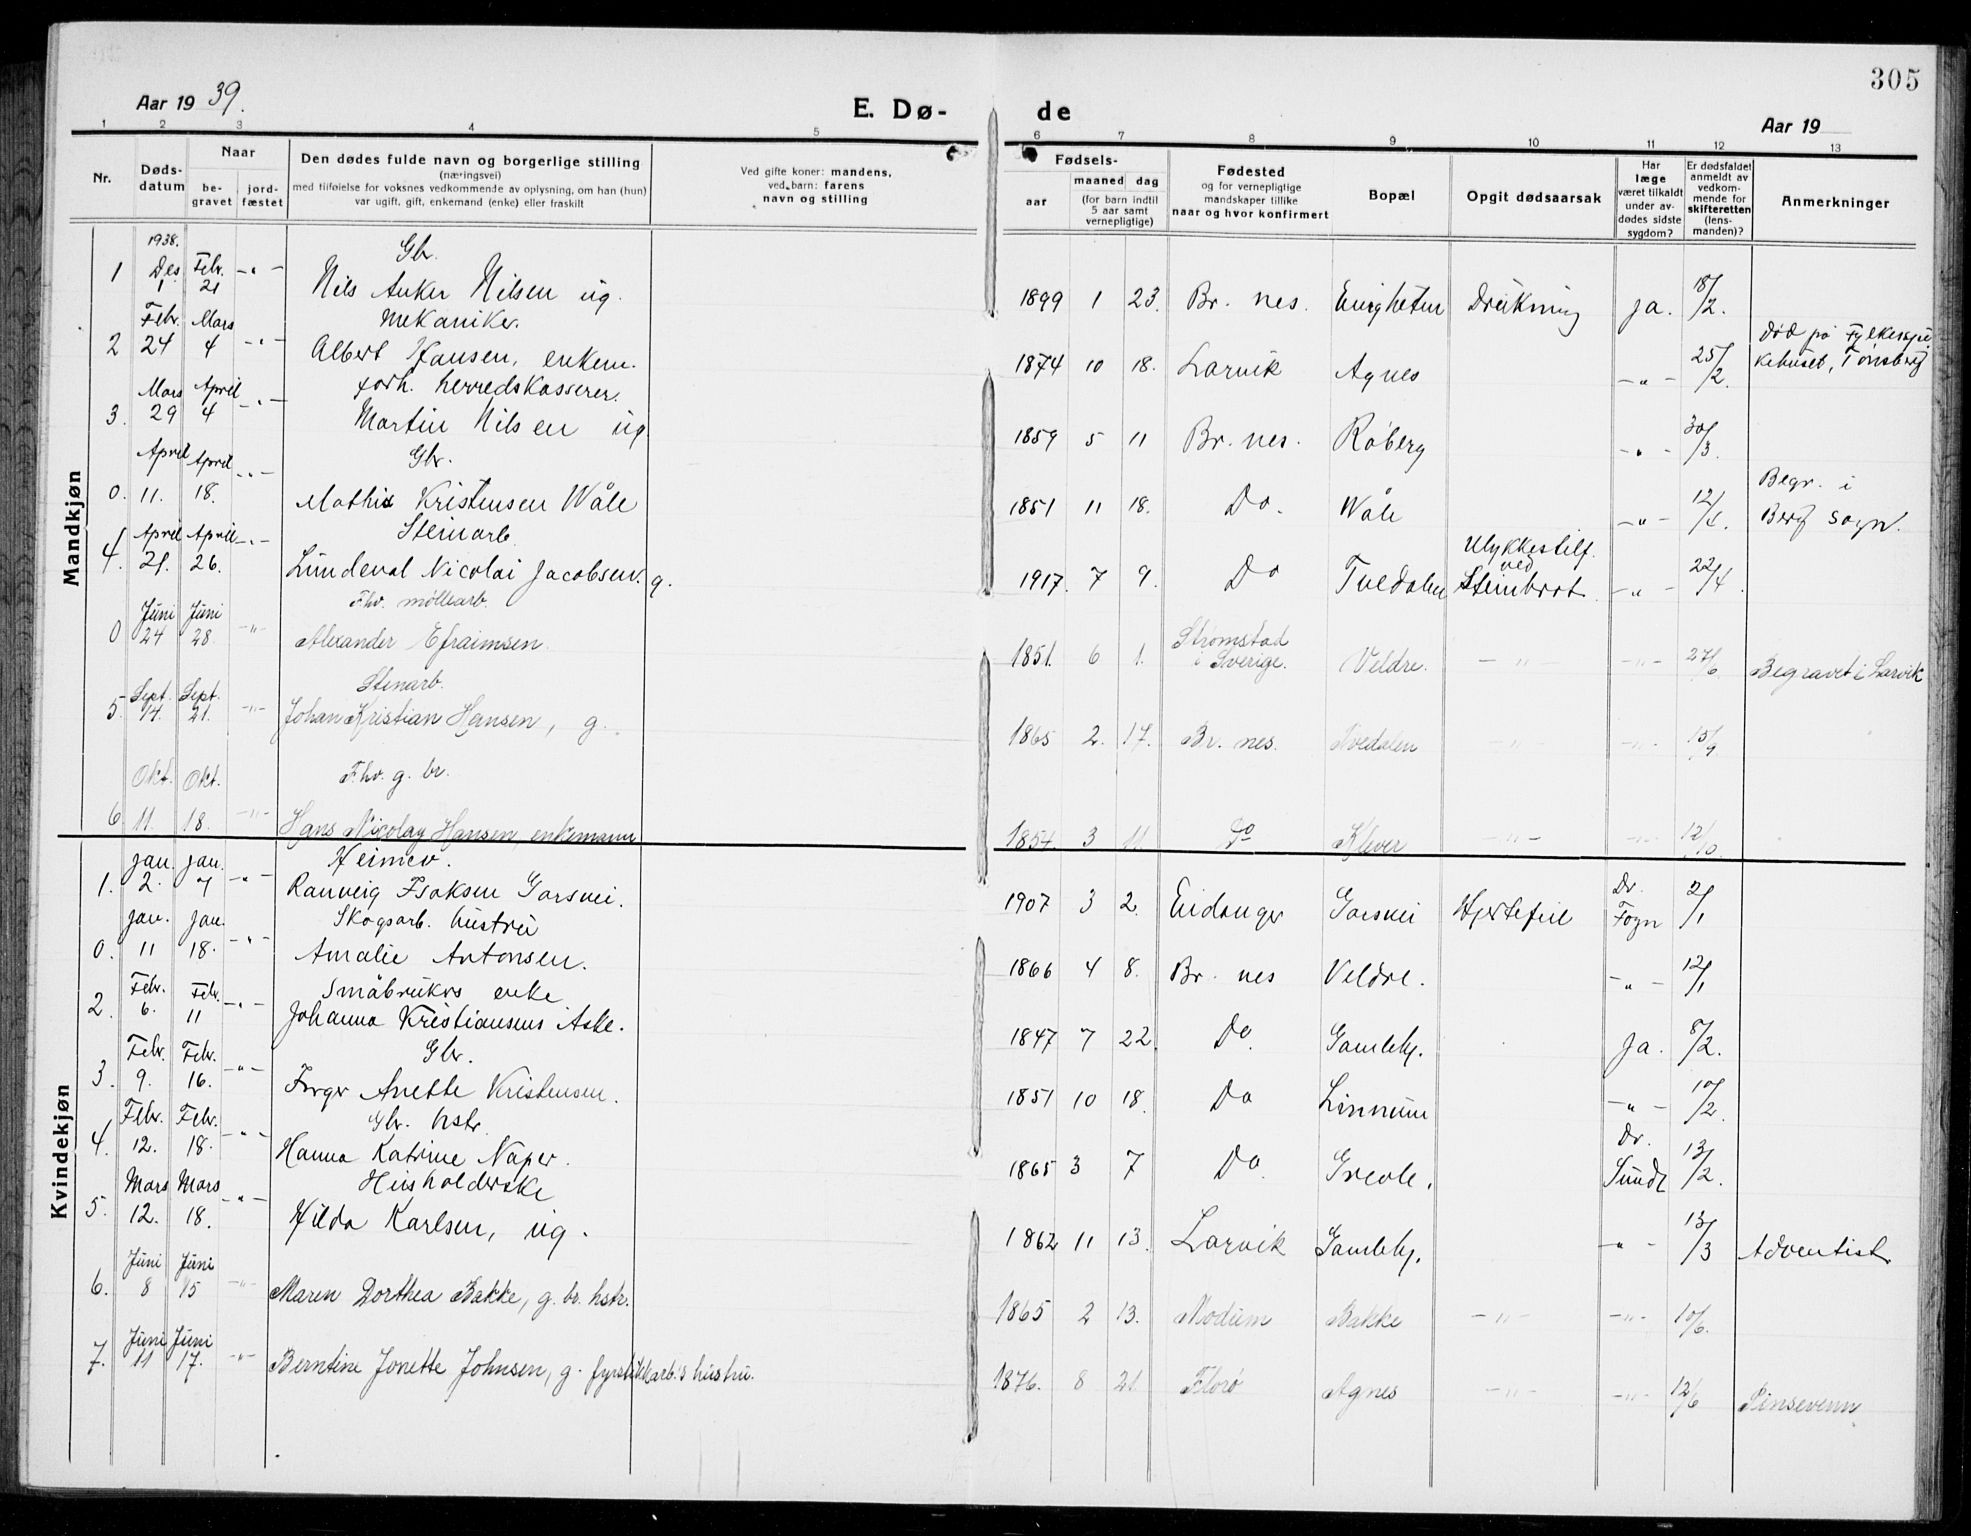 305
Aar 19 39.
E. Dø- de
Aar 19
1 2 3 4 5 6 7 8 9 10 11 12 13
Nr.
Døds-
datum
Naar
be-
gravet
jord-
fæstet
Den dødes fulde navn og borgerlige stilling
(næringsvei)
med tilføielse for voksnes vedkommende av oplysning, om han (hun)
var ugift, gift, enkemand (enke) eller fraskilt
Ved gifte koner: mandens,
ved barn: farens
navn og stilling
Fødsels-
aar
maaned dag
(for barn indtil
5 aar samt
vernepligtige)
Fødested
og for vernepligtige
mandskaper tillike
naar og hvor konfirmert
Bopæl
Opgit dødsaarsak
Har
læge
været tilkaldt
under av-
dødes sidste
sygdom?
Er dødsfaldet
anmeldt av
vedkom-
mende for
skifteretten
(lens-
manden)?
Anmerkninger
Mandkjøn
1938. Gbr.
1 Des. 1 Febr. 21 -"- Nils Anker Nilsen ug. 1899 1 23. Br. nes. Enigheten Drukning ja. 18/2.
Mekaniker.
2 Febr. 24 Mars 4 -"- Albert Hansen, enkem. 1874 10 18. Larvik Agnes -"- 25/2. Død på Fylkessju-
kehuset, Tønsberg
forh. herredskasserer.
3. Mars 29 April 4 -"- Martin Nilsen ug 1859 5 11 Br. nes. Råberg -"- 30/3.
Gbr.
0. April 11. April 18. -"- Mathis Kristensen Wåle 1851 11 18. Do. Wåle -"- 12/4. Begr. i
Berg sogn.
Steinarb.
4. April 21. April 26. -"- Lundeval Nicolai Jacobsen. g. 1917. 7 9. Do Tvedalen Ulykkestilf.
ved
Steinbrot. -"- 22/4.
Fhv. møllearb.
0 Juni 24 Juni 28. -"- Alexander Efraimsen. 1851. 6 1. Strømstad
i Sverige. Veldre. -"- -"- 27/6 Begravet i Larvik
Stenarb.
5. Sept. 14. Sept. 21. -"- Johan Kristian Hansen, g. 1865 2. 17. Br. nes. Tvedalen -"- -"- 15/9
Fhv. g. br.
6 Okt. 11. Okt. 18. -"- Hans Nicolay Hansen, enkemann 1854 3 11 Do Klever -"- -"- 12/10.
Kvindekjøn
Heimev.
1. jan. 2. jan. 7 -"- Ranveig Isaksen Gorsvei. 1907 3 2. Eidanger Gorsvei Hjertefeil Dr.
Fogn 2/1
Skogsarb. hustru
0. jan. 11 jan. 18. -"- Amalie Antonsen. 1866 4 8. Br. nes Veldre. -"- 12/1
Småbrukrs enke
2. Febr. 6. Febr. 11 -"- Johanna Kristiansens Aske. 1847 7 22. Do. Gamleby. Ja. 8/2.
Gbr.
3. Febr. 9. Febr. 16. -"- Inger Anette Kristensen. 1851 10 18. Do Linnum -"- 10/2.
Gbr. hstr.
4. Febr. 12. Febr. 18. -"- Hanna Katrine Naper. 1865 3 7 Do. Grevle. Dr.
Sunde 13/2.
Husholderske
5. Mars 12. Mars 18. -"- Hilda Karlsen, ug. 1862 11 13. Larvik Gamleby. -"- 13/3 Adventist
6. Juni 8 Juni 15 -"- Maren Dorthea Bakke, g. br. hstr. 1865 2 13. Modum Bakke -"- -"- 10/6.
7. Juni 11 Juni 17. -"- Berntine Jonette Johnsen, g. fyrstikkarb.'s hustru. 1876. 8 21. Florø Agnes -"- -"- 12/6 Pinsevenn